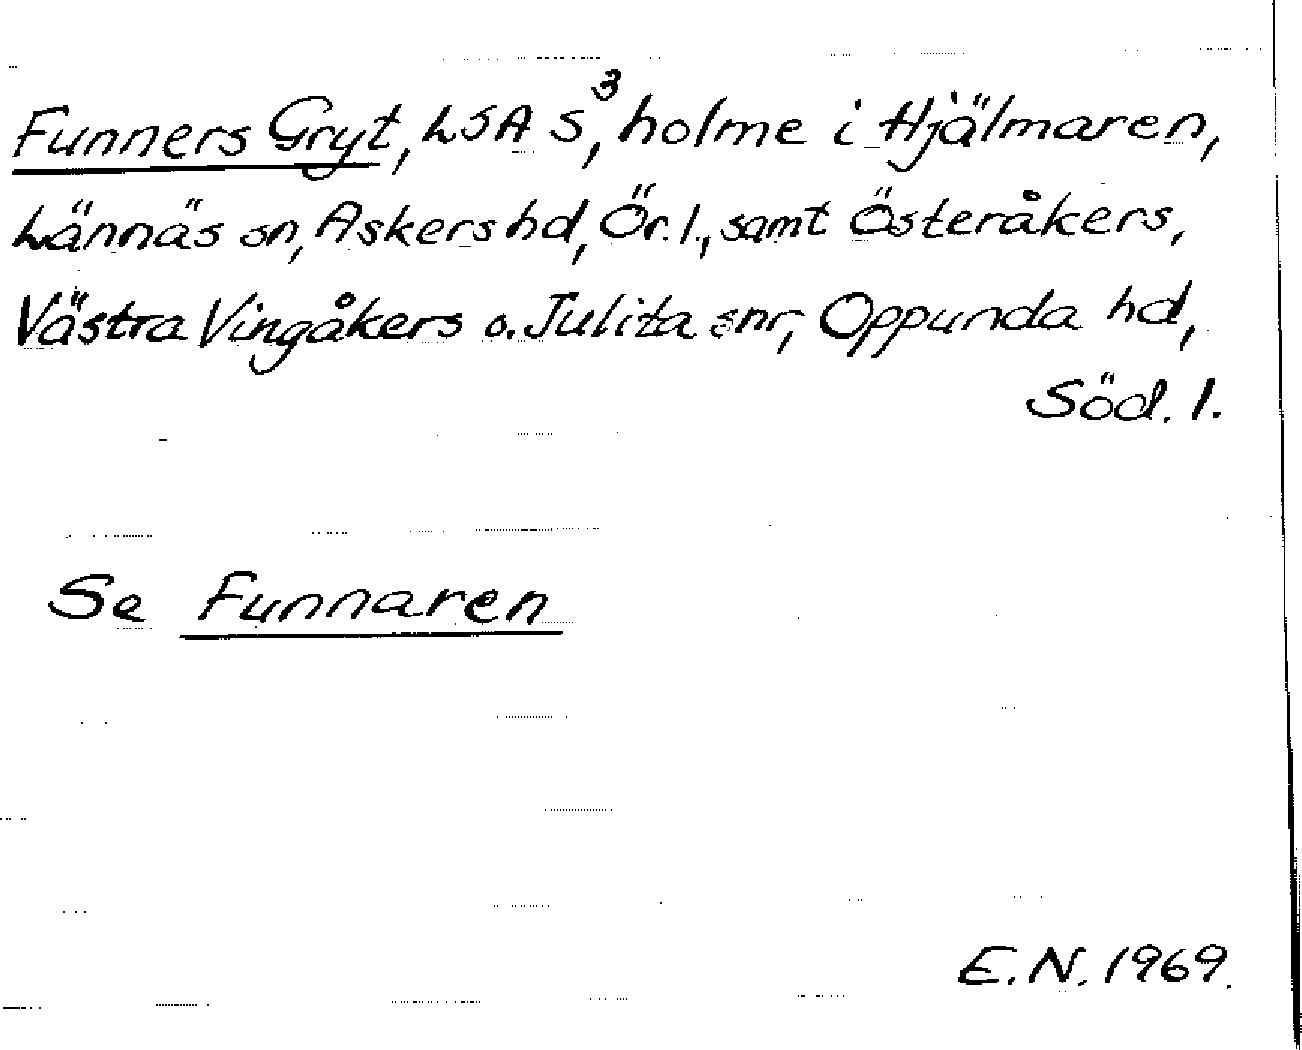 Funners Gryt, LSA S³, holme i Hjälmaren,
Lännäs sn, Askers hd, Ör. l., samt Österåkers,
Västra Vingåkers o. Julita snr, Oppunda hd,
Söd. l.
Se Funnaren
E.N. 1969.